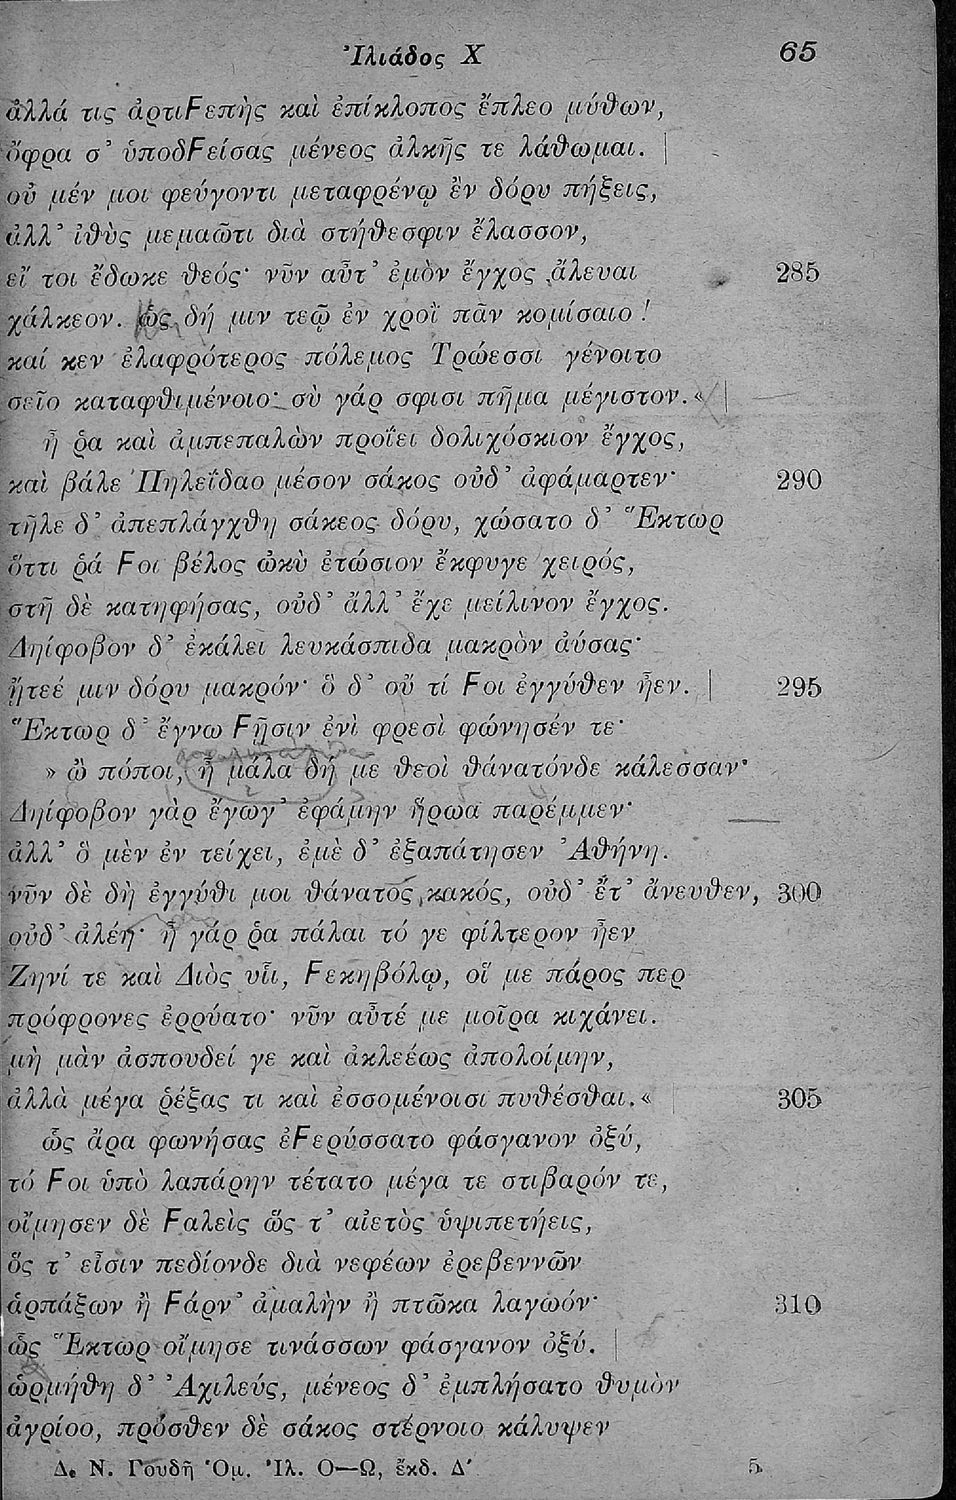 Ἰλιάδος Χ 65
ἀλλά τις ἀρτιϜεπὴς καὶ ἐπίκλοπος ἔπλεο μύθων,
ὄφρα σ' ὑποδϜείσας μένεος ἀλκῆς τε λάθωμαι.
οὐ μέν μοι φεύγοντι μεταφρένῳ ἒν δόρυ πήξεις,
ἀλλ' ἰθὺς μεμαῶτι διὰ στήθεσφιν ἔλασσον,
εἴ τοι ἔδωκε θεός· νῦν αὖτ' ἐμὸν ἔγχος ἄλευαι 285
χάλκεον. ὣς δή μιν τεῷ ἐν χροῒ πᾶν κομίσαιο!
καί κεν ἐλαφρότερος πόλεμος Τρώεσσι γένοιτο
σεῖο καταφθιμένοιο· σὺ γάρ σφισι πῆμα μέγιστον.«
ἦ ῥα καὶ ἀμπεπαλὼν προΐει δολιχόσκιον ἔγχος,
καὶ βάλε Πηλεΐδαο μέσον σάκος οὐδ' ἀφάμαρτεν· 290
τῆλε δ' ἀπεπλάγχθη σάκεος δόρυ, χώσατο δ' Ἕκτωρ
ὅττι ῥά Ϝοι βέλος ὠκὺ ἐτώσιον ἔκφυγε χειρός,
στῆ δὲ κατηφήσας, οὐδ' ἄλλ' ἔχε μείλινον ἔγχος.
Δηίφοβον δ' ἐκάλει λευκάσπιδα μακρὸν ἀύσας·
ᾔτεέ μιν δόρυ μακρόν· ὃ δ' οὔ τί Ϝοι ἐγγύθεν ἦεν. 295
Ἕκτωρ δ' ἔγνω Ϝῇσιν ἐνὶ φρεσὶ φώνησέν τε·
» ὢ πόποι, ἦ μάλα δή με θεοὶ θάνατόνδε κάλεσσαν·
Δηίφοβον γὰρ ἔγωγ' ἐφάμην ἥρωα παρέμμεν·
ἀλλ' ὃ μὲν ἐν τείχει, ἐμὲ δ' ἐξαπάτησεν Ἀθήνη.
νῦν δὲ δὴ ἐγγύθι μοι θάνατός κακός, οὐδ' ἔτ' ἄνευθεν, 300
οὐδ' ἀλέη· ἦ γάρ ῥα πάλαι τό γε φίλτερον ἦεν
Ζηνί τε καὶ Διὸς υἷι, Ϝεκηβόλῳ, οἵ με πάρος περ
πρόφρονες ἐρρύατο· νῦν αὖτέ με μοῖρα κιχάνει.
μὴ μὰν ἀσπουδεί γε καὶ ἀκλεέως ἀπολοίμην,
ἀλλὰ μέγα ῥέξας τι καὶ ἐσσομένοισι πυθέσθαι.« 305
ὣς ἄρα φωνήσας ἐϜερύσσατο φάσγανον ὀξύ,
τό Ϝοι ὑπὸ λαπάρην τέτατο μέγα τε στιβαρόν τε,
οἴμησεν δὲ Ϝαλεὶς ὥς τ' αἰετὸς ὑψιπετήεις,
ὅς τ' εἶσιν πεδίονδε διὰ νεφέων ἐρεβεννῶν
ἁρπάξων ἢ Ϝάρν' ἀμαλὴν ἢ πτῶκα λαγωόν· 310
ὣς Ἕκτωρ οἴμησε τινάσσων φάσγανον ὀξύ.
ὡρμήθη δ' Ἀχιλεύς, μένεος δ' ἐμπλήσατο θυμὸν
ἀγρίοο, πρόσθεν δὲ σάκος στέρνοιο κάλυψεν
Δ. Ν. Γουδῆ Ὁμ. Ἰλ. Ο—Ω, ἔκδ. Δ' 5